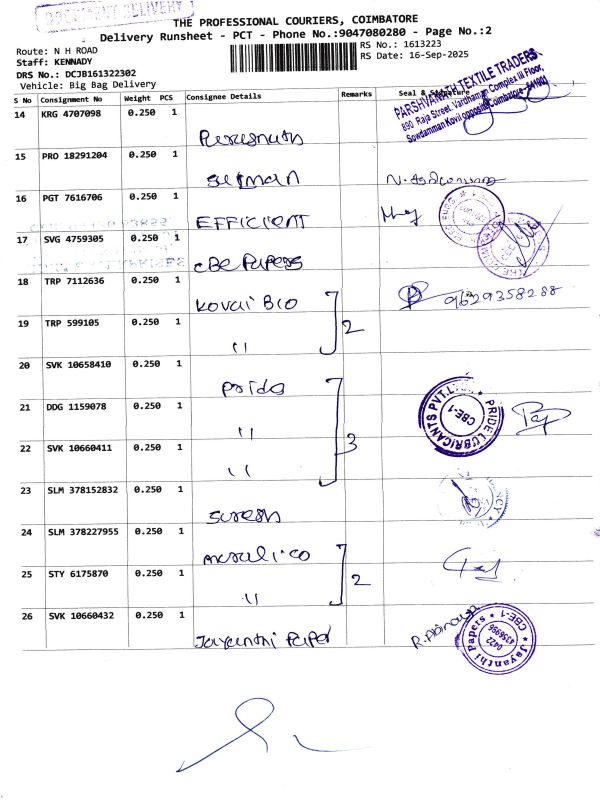 DOCUMENT DELIVERY
THE PROFESSIONAL COURIERS, COIMBATORE
Delivery Runsheet - PCT - Phone No.:9047080280 - Page No.:2
Route: N H ROAD
RS No.: 1613223
Staff: KENNADY
RS Date: 16-Sep-2025
DRS No.: DCJB161322302
Vehicle: Big Bag Delivery
S No Consignment No Weight PCS Consignee Details Remarks Seal & Signature
PARSHVANATH TEXTILE TRADERS
890 Raja Street, Vardhaman Complex III Floor,
Sowdamman Kovil opposite Coimbatore - 641001
14 KRG 4707098 0.250 1
15 PRO 18291204 0.250 1
16 PGT 7616706 0.250 1 EFFICIENT
17 SVG 4759305 0.250 1 CBE Papers
18 TRP 7112636 0.250 1 Kovai Bio 9629358288
19 TRP 599105 0.250 1 " 2
20 SVK 10658410 0.250 1 Pride
21 DDG 1159078 0.250 1 "
PRIDE LUBRICANTS PVT.LTD. CBE-1
22 SVK 10660411 0.250 1 " 3
23 SLM 378152832 0.250 1 Suresh
24 SLM 378227955 0.250 1
25 STY 6175870 0.250 1 " 2
26 SVK 10660432 0.250 1 Jayanthi Paper
Jayanthi Papers CBE-1 0422 4356996